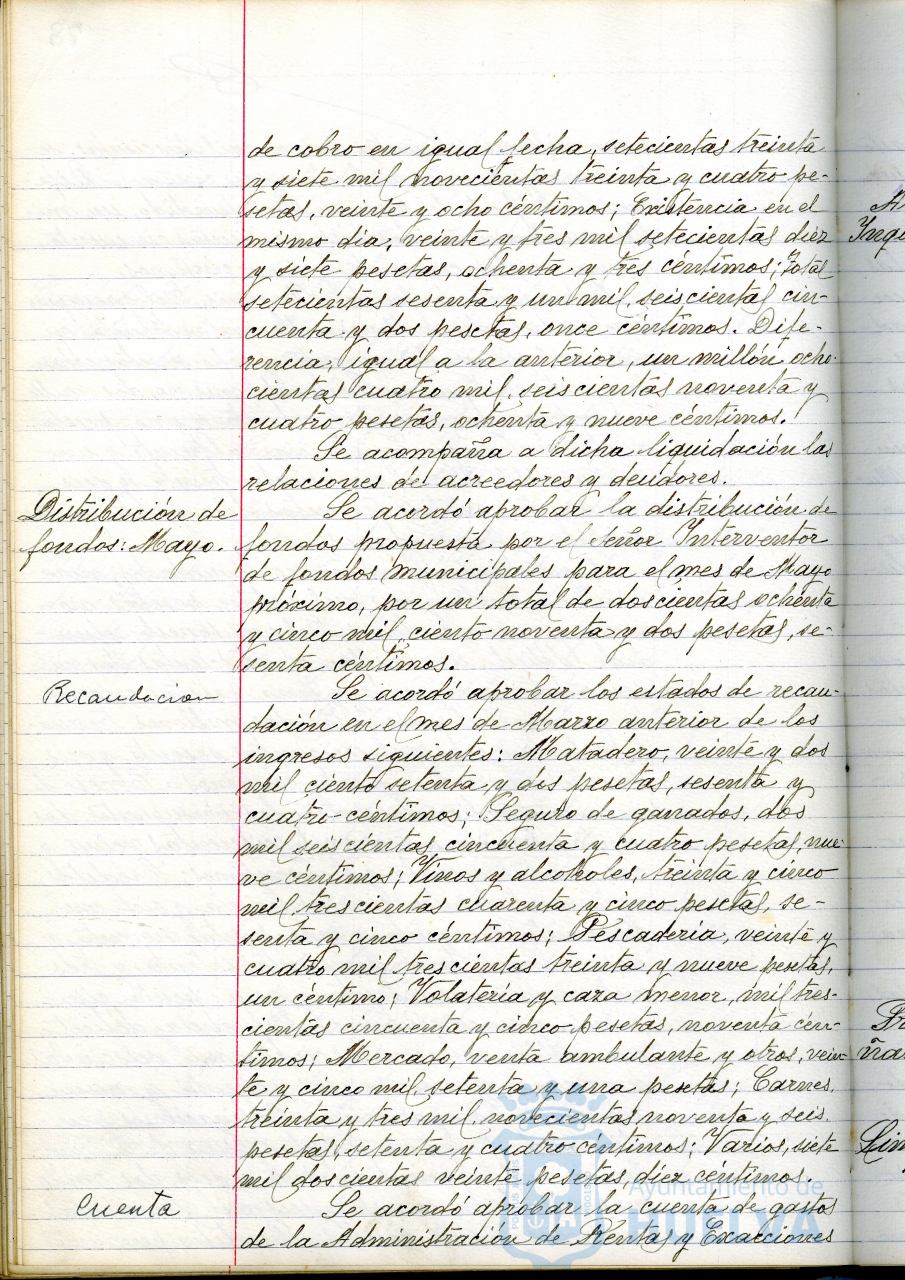 de cobro en igual fecha, setecientas treinta
y siete mil novecientas treinta y cuatro pe-
setas, veinte y ocho céntimos; Existencia en el
mismo dia, veinte y tres mil setecientas diez
y siete pesetas, ochenta y tres céntimos; Total
setecientas sesenta y un mil, seiscientas cin-
cuenta y dos pesetas, once céntimos. Dife-
rencia, igual a la anterior, un millón ocho-
cientas cuatro mil, seiscientas noventa y
cuatro pesetas, ochenta y nueve céntimos.
Se acompaña a dicha liquidación las
relaciones de acreedores y deudores.
Distribución de
fondos: Mayo.
Se acordó aprobar la distribución de
fondos propuesta por el Señor Interventor
de fondos municipales para el mes de Mayo
próximo, por un total de doscientas ochenta
y cinco mil, ciento noventa y dos pesetas, se-
senta céntimos.
Recaudacion
Se acordó aprobar los estados de recau-
dación en el mes de Marzo anterior de los
ingresos siguientes: Matadero, veinte y dos
mil ciento setenta y dos pesetas, sesenta y
cuatro céntimos; Seguro de ganados, dos
mil seiscientas cincuenta y cuatro pesetas, nue-
ve céntimos; Vinos y alcoholes, treinta y cinco
mil, trescientas cuarenta y cinco pesetas, se-
senta y cinco céntimos; Pescaderia, veinte y
cuatro mil trescientas treinta y nueve pesetas,
un céntimo; Volatería y caza menor, mil tres-
cientas cincuenta y cinco pesetas, noventa cén-
timos; Mercado, venta ambulante y otros, vein-
te y cinco mil, setenta y una pesetas; Carnes,
treinta y tres mil, novecientas noventa y seis
pesetas, setenta y cuatro céntimos; Varios, siete
mil doscientas veinte pesetas, diez céntimos.
Cuenta
Se acordó aprobar la cuenta de gastos
de la Administración de Rentas y Exacciones
Ayuntamiento de
HUELVA